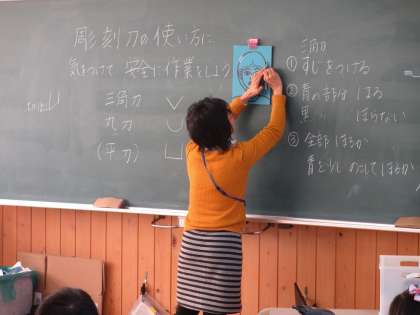 彫刻刀の使い方に
気をつけて 安全に作業をしよう
三角刀 ∨
丸刀 ∪
(平刀)
三角刀
① すじをつける
② 青の部分 ほる
黒 〃 ほらない
③ 全部ほるか
青を少しのこしてほるか